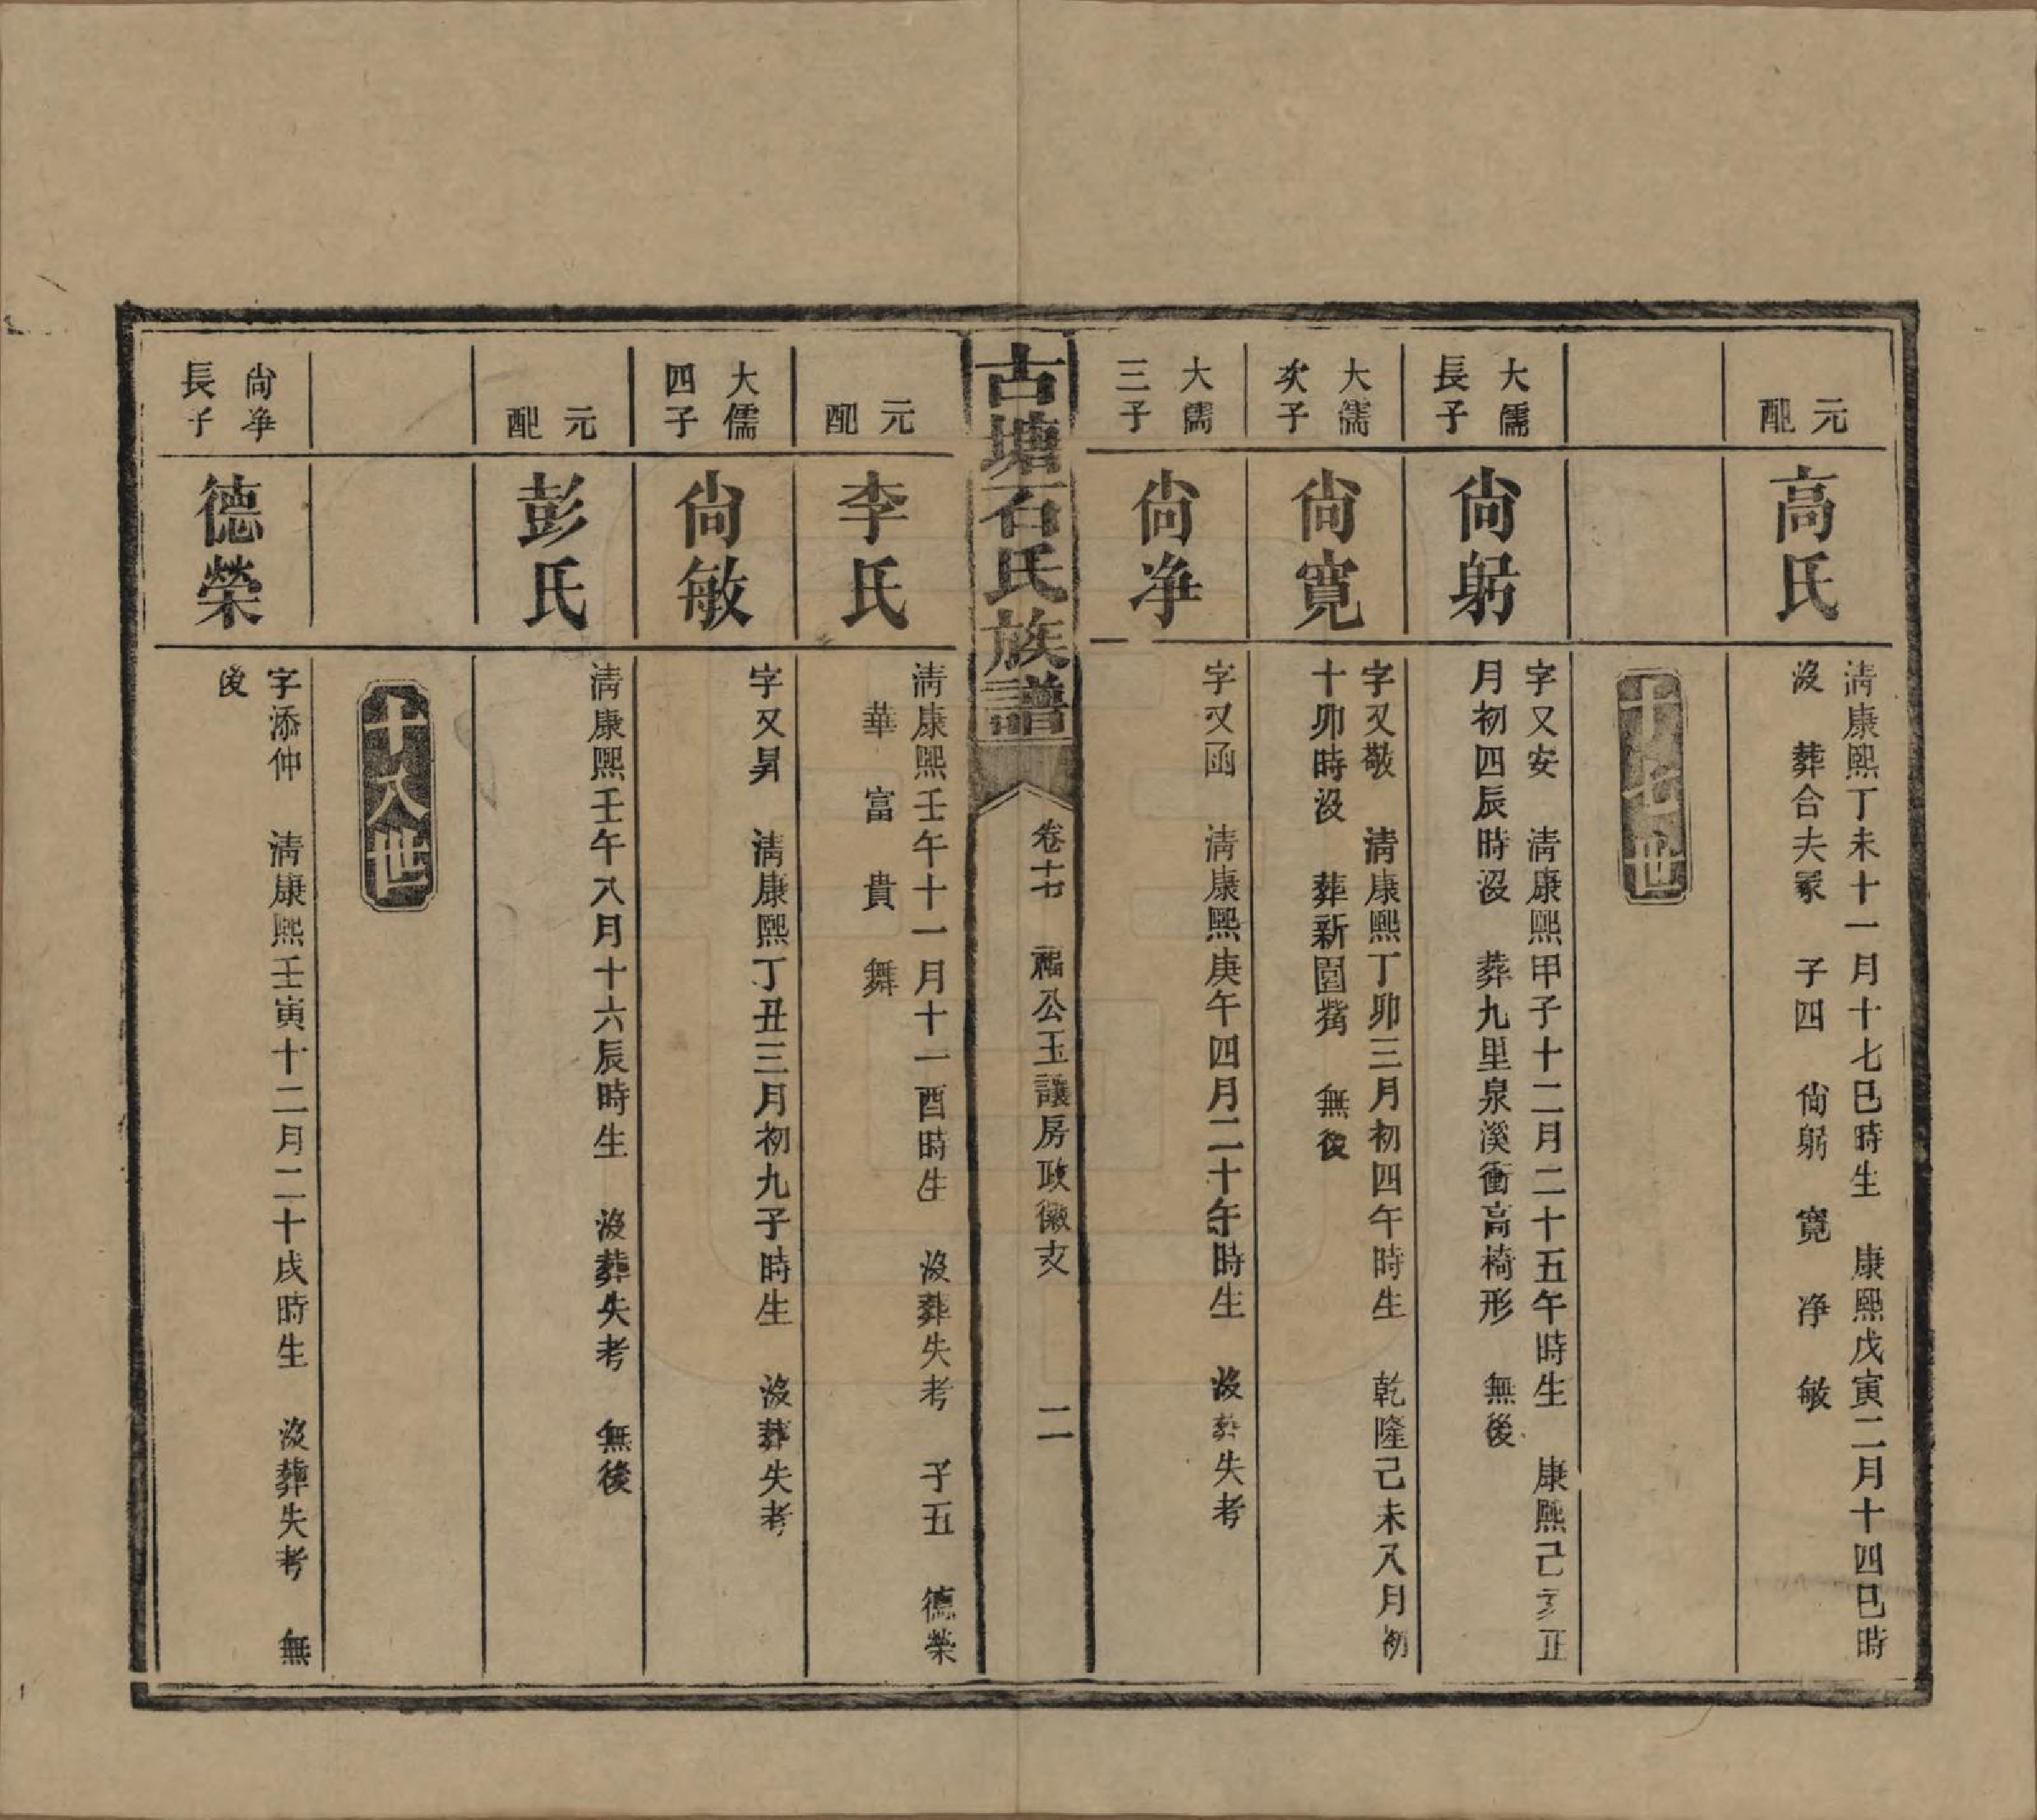 元配
高氏
淸康熙丁未十一月十七巳時生　康熙戊寅二月十四巳時
沒　葬合夫冢　子四　尙躬　寬　净　敏
十七世
大儒長子
尙躬
字又安　淸康熙甲子十二月二十五午時生　康熙己亥正
月初四辰時沒　葬九里泉溪衝高椅形　無後
大儒次子
尙寬
字又敬　淸康熙丁卯三月初四午時生　乾隆己未八月初
十卯時沒　葬新圍觜　無後
大儒三子
尙净
字又函　淸康熙庚午四月二十午時生　沒葬失考
古塘石氏族譜
卷十七　福公玉讓房政徽支　二
元配
李氏
淸康熙壬午十一月十一酉時生　沒葬失考　子五　德榮
華　富　貴　舞
大儒四子
尙敏
字又昇　淸康熙丁丑三月初九子時生　沒葬失考
元配
彭氏
淸康熙壬午八月十六辰時生　沒葬失考　無後
十八世
尙净長子
德榮
字添仲　淸康熙壬寅十二月二十戌時生　沒葬失考　無
後